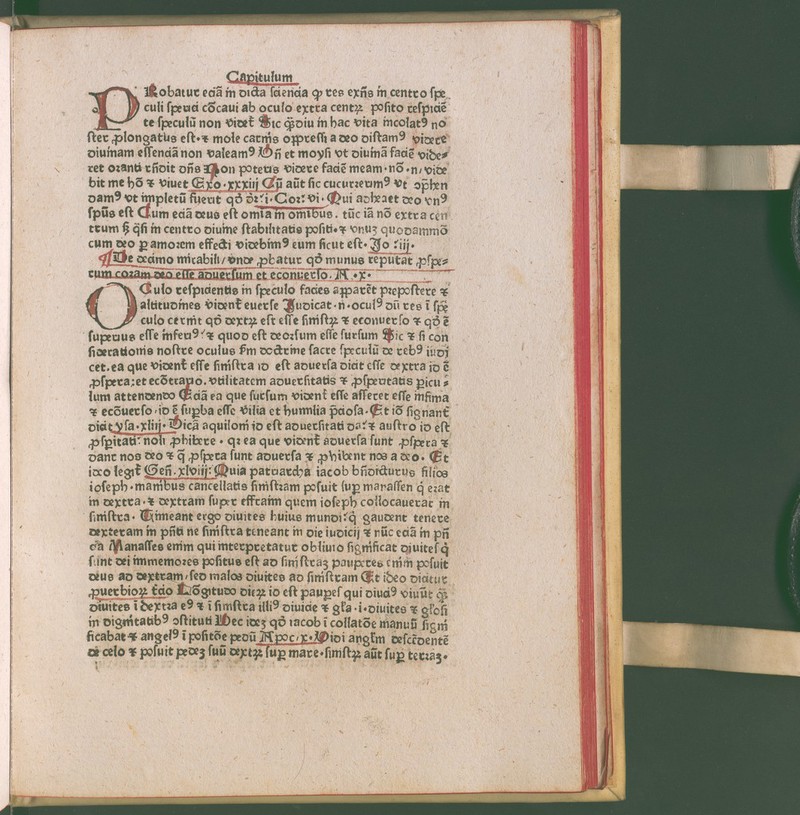 Capitulum
PRobatur eciā in dicta sciencia ꝙ res exn̄s in centro spe
culi speculi cōcaui ab oculo extra centꝝ posito respiciē
te speculū non videt̄ Sic qȝdiu in hac vita incolatꝰ no
ster ꝓlongatus est · ⁊ mole carnis oppressi a deo distamꝰ videre
diuinam essenciā non valeamꝰ Vn̄ et moysi vt diuinā faciē vide⸗
ret oranti rn̄dit dn̄s Non poteris videre faciē meam · nō · n · vide
bit me hō ⁊ viuet Exo · xxxiij Cū aūt sic cucurrerimꝰ vt ↄp̄hen
damꝰ vt impletū fuerit qō dr̄ · i · Cor · vi · Qui adheret deo vnꝰ
spūs est Cum eciā deus est omīa in omībus · tūc iā nō extra cen
trum ſȝ q̄si in centro diuine stabilitatis positi · ⁊ vnuȝ quodammō
cum deo per amorem effecti videbimꝰ eum sicut est · Jo · iij ·
¶ De decimo mirabili / vnde ꝓbatur qō munus reputat̄ ꝓspe⸗
rum coram deo esse aduersum et econuerso · R · x ·
OCulo respicientis in speculo facies apparēt prepostere ⁊
altitudines vident̄ euerse Judicat · n · oculꝰ dū res ī spē
culo cernit qō dextꝝ est esse sinistꝝ ⁊ econuerso ⁊ qō ē
superius esse inferiꝰ · ⁊ quod est deorsum esse sursum Sic ⁊ si con
siderationis nostre oculus scd̄m doctrine sacre speculū de rebꝰ iudi
cet · ea que vident̄ esse sinistra id est aduersa dicit esse dextra id ē
ꝓspera ; et ecōtrario · vtilitatem aduersitatis ⁊ ꝓsperitatis ꝑicu⸗
lum attendendo Eciā ea que sursum vident̄ esse asseret esse infima
⁊ ecōuerso · id ē suꝑba esse vilia et humilia p̄ciosa · Et iō signant̄
dicit ysa · xliij · Dicā aquiloni id est aduersitati da · ⁊ austro id est
ꝓsꝑitati · noli ꝓhibere · qꝛ ea que vident̄ aduersa sunt ꝓspera ⁊
dant nos deo ⁊ q̄ ꝓspera sunt aduersa ⁊ ꝓhibent nos a deo · Et
ideo legit̄ Gen̄ · xlviij · Quia patriarcha iacob bn̄dicturus filios
ioseph · manibus cancellatis sinistram posuit suꝑ manassen q̄ erat
in dextra · ⁊ dextram super effraim quem ioseph collocauerat in
sinistra · Timeant ergo diuites huius mundi · q̄ gaudent tenere
dexteram in pn̄ti ne sinistra teneant in die iudicij ⁊ nūc eciā in pn̄
cia Manasses enim qui interpretatur obliuio significat diuites q̄
sunt dei immemores positus est ad sinistraȝ pauperes enim posuit
deus ad dextram / sed malos diuites ad sinistram Et ideo dicitur
ꝓuerbioꝝ t̄cio Lōgitudo dieꝝ id est pauperes qui diuciꝰ viuūt qȝ
diuites ī dextra eꝰ ⁊ ī sinistra illiꝰ diuicie ⁊ gl̄a · i · diuites ⁊ gl̄osi
in dignitatibꝰ ↄstituti Hec ideȝ qō iacob ī collatōe manuū signi
ficabat ⁊ angelꝰ ī positōe pedū Apoc · x · Vidi angl̄m descēdentē
de celo ⁊ posuit pedeȝ suū dextꝝ suꝑ mare · sinistꝝ aūt suꝑ terraȝ ·